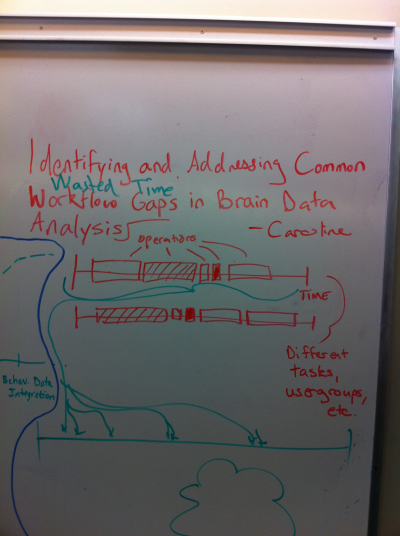 Identifying and Addressing Common
Wasted Time
Workflow Gaps in Brain Data
Analysis
- Caroline
operations
TIME
Different
tasks,
usergroups,
etc.
Behav. Data
Integration